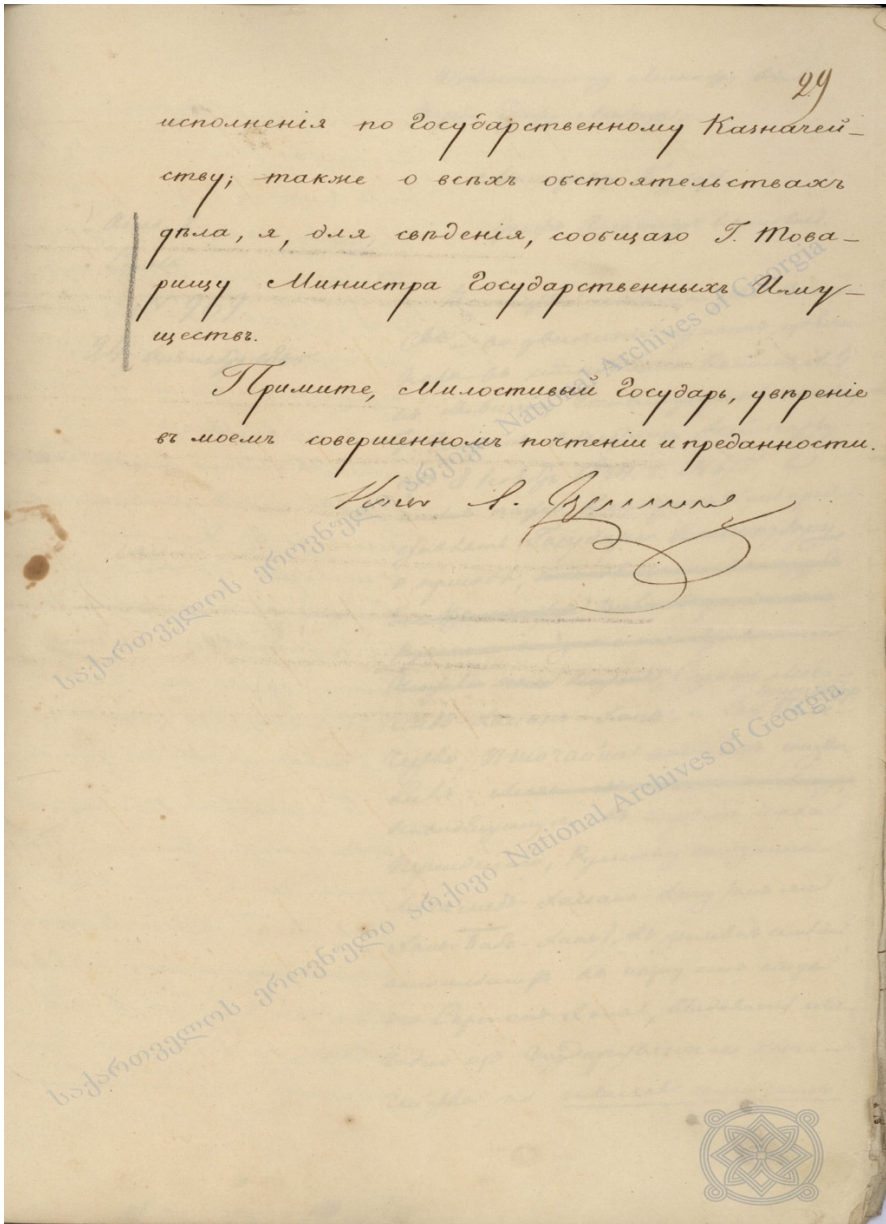 29
исполненія по Государственному Казначей-
ству; также о всѣхъ обстоятельствахъ
дѣла, я, для свѣденія, сообщаю Г. Това-
рищу Министра Государственныхъ Иму-
ществъ.
Примите, Милостивый Государь, увѣреніе
въ моемъ совершенномъ почтеніи и преданности.
საქართველოს ეროვნული არქივი National Archives of Georgia
საქართველოს ეროვნული არქივი National Archives of Georgia